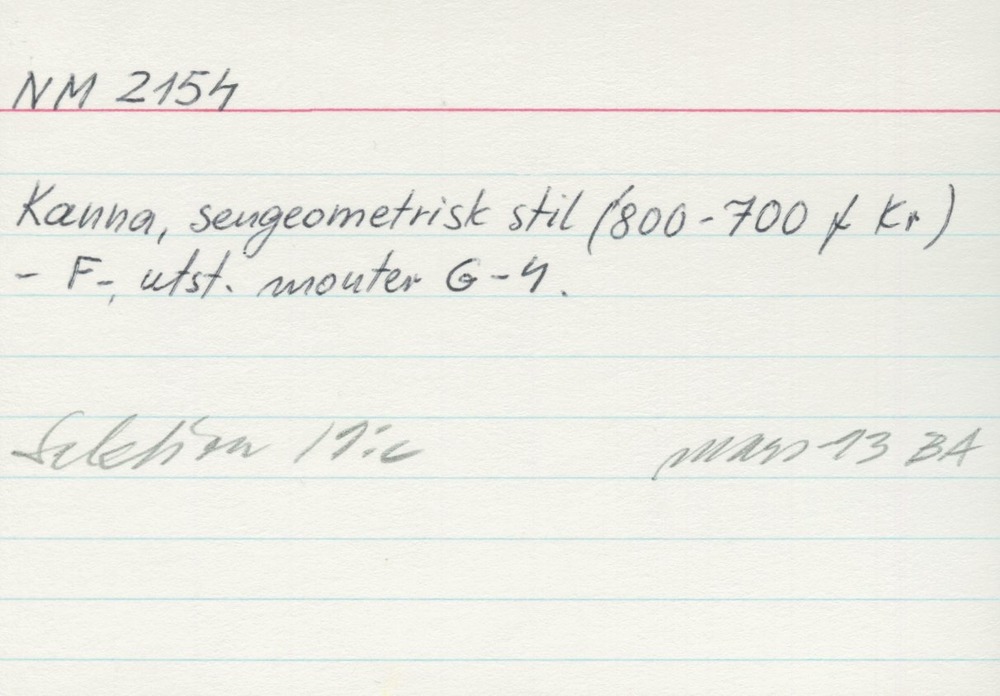 NM 2154
Kanna, sengeometrisk stil (800-700 f Kr)
- F-, utst. monter G-4.
Sektion 19:c mars-13 BA